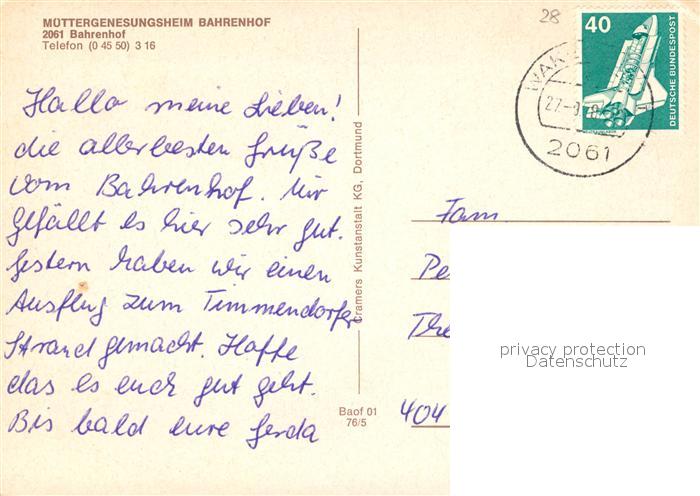 MÜTTERGENESUNGSHEIM BAHRENHOF
2061 Bahrenhof
Telefon (0 45 50) 3 16
Hallo meine Lieben!
die allerbesten Grüße
vom Bahrenhof. Mir
gefällt es hier sehr gut.
Gestern haben wir einen
Ausflug zum Timmendorfer
Strand gemacht. Hoffe
das es euch gut geht.
Bis bald eure Gerda
Cramers Kunstanstalt KG, Dortmund
Baof 01
76/5
28
40
DEUTSCHE BUNDESPOST
2061
Fam.
404
privacy protection
Datenschutz